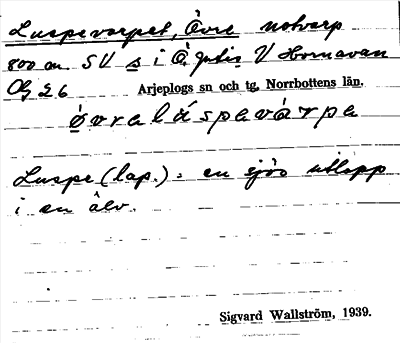 Luspevarpet, Övre notvarp
800 m SV s i Ö. V Hornavan
Of 26 Arjeplogs sn och tg, Norrbottens län.
øvraláspavárpa
Luspe (lap.) = en sjös utlopp
i en älv.
Sigvard Wallström, 1939.